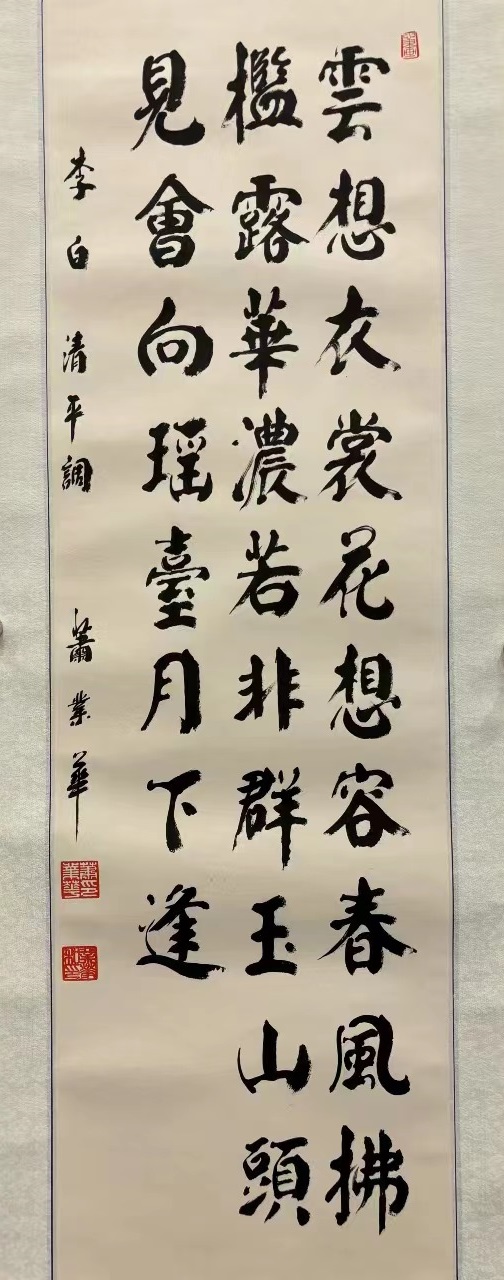 雲想衣裳花想容春風拂
檻露華濃若非群玉山頭
見會向瑤臺月下逢
李白 清平調 蕭業華